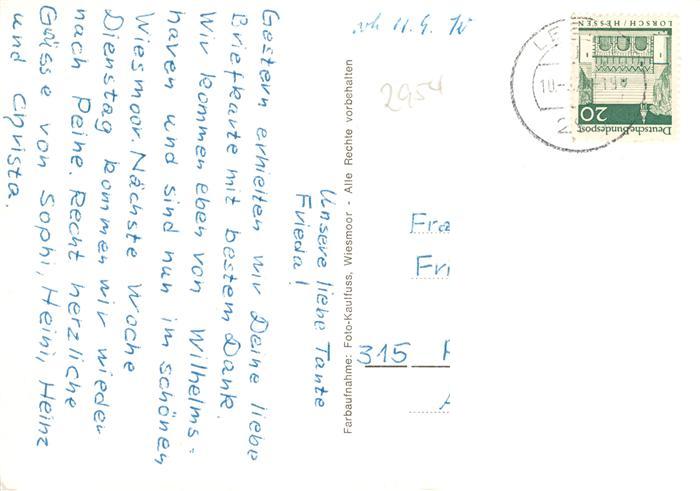 Unsere liebe Tante
Frieda!
Gestern erhielten wir Deine liebe
Briefkarte mit bestem Dank.
Wir kommen eben von Wilhelms=
haven und sind nun im schönen
Wiesmoor. Nächste Woche
Dienstag kommen wir wieder
nach Peine. Recht herzliche
Grüsse von Sophi, Heini, Heinz
und Christa.
Farbaufnahme: Foto-Kaulfuss, Wiesmoor - Alle Rechte vorbehalten
2954
LORSCH/HESSEN
20
Deutsche Bundespost
Fra
Fri
315